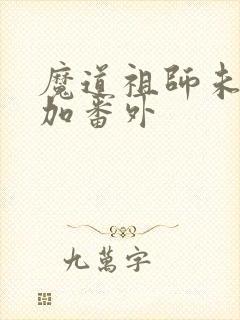 魔道祖師未
加番外
九萬字